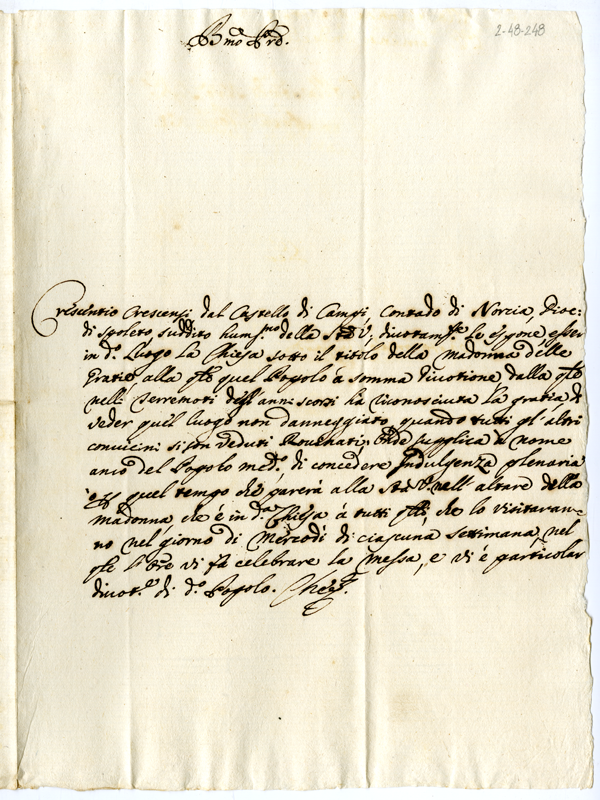 2-48-248
B.mo P.re
Crescintio Crescensi dal Castello di Campi Contado di Norcia, Dioc:
di Spoleto suddito hum.mo della S.tà V., divotam.te le espone, esser
in d.o Luogo la Chiesa sotto il titolo della Madonna delle
Gratie, alla q.le quel Popolo à somma divotione, dalla q.le
nelli Terremoti dell'anni scorsi hà riconosciuta la gratia di
veder quel luogo non danneggiato, quando tutti gl'altri
convicini si son veduti Rovinati; Onde supplica à nome
anco del Popolo med.o di concedere Indulgenza plenaria
per quel tempo che parerà alla S.tà V. nell'altare della
Madonna che è in d.a Chiesa à tutti q.lli, che lo visitaran-
no nel giorno di Mercodì di ciascuna settimana, nel
q.le l'Ore vi fà celebrare la messa, e vi è particolar
divot.e di d.o Popolo. Che